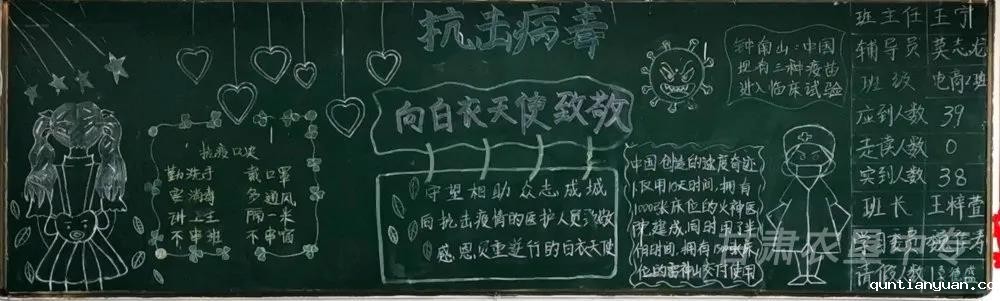 抗击病毒
向白衣天使致敬
守望相助众志成城
向抗击疫情的医护人员致敬
感恩负重逆行的白衣天使
抗疫口诀
勤洗手 戴口罩
室消毒 多通风
讲卫生 隔一米
不串班 不串宿
钟南山：中国
现有三种疫苗
进入临床试验
中国创造的速度奇迹
仅用10天时间，拥有
1000张床位的火神医
院建成同时用了半
个月时间，拥有
位的雷神山交付使用
班主任 王宁
辅导员 莫志龙
班级 电商2班
应到人数 39
走读人数 0
实到人数 38
班长 王梓萱
请假人数 1
肃农垦中专
quntianyuan.com